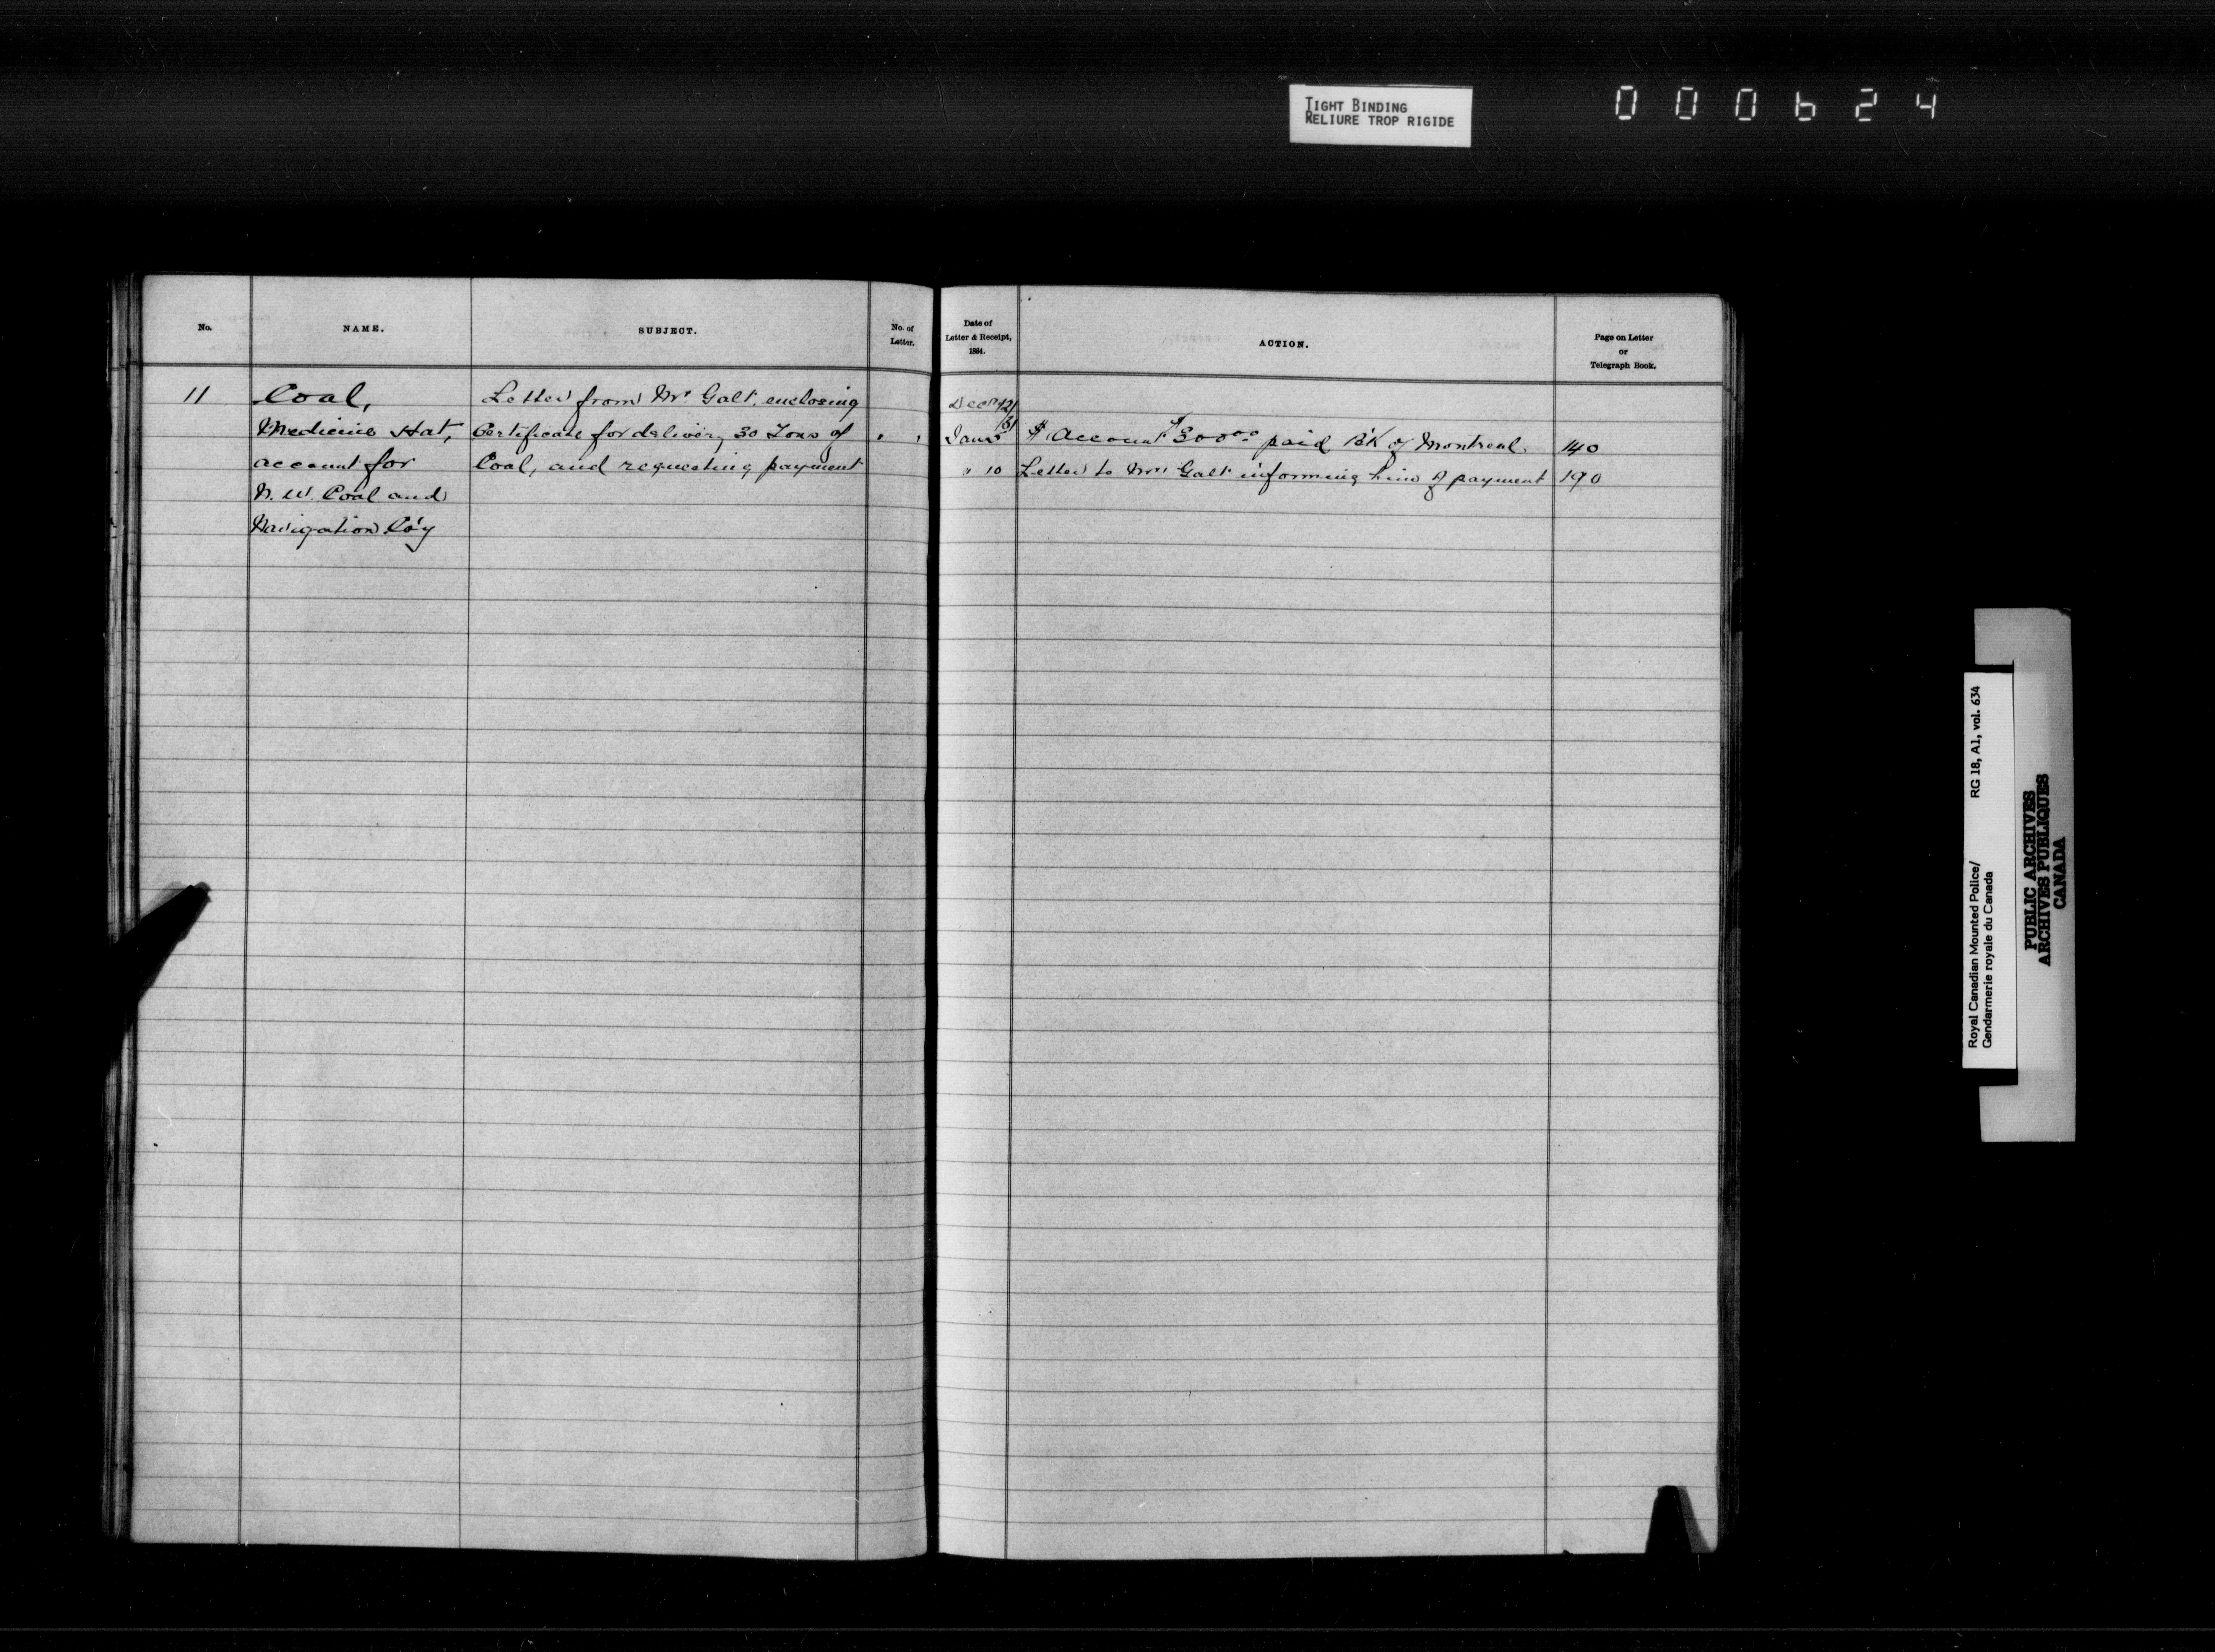 TIGHT BINDING
RELIURE TROP RIGIDE
000624
No.
NAME.
SUBJECT.
No. of
Letter.
Date of
Letter & Receipt,
1884.
ACTION.
Page on Letter
or
Telegraph Book.
11
Coal,
Medicine Hat,
account for
N. W. Coal and
Navigation Co'y
Letter from Mr. Galt. enclosing
Certificate for delivery 30 Tons of
Coal, and requesting payment
Decr 12/
Jany 5
$ Account $300.00 paid B'k of Montreal.
140
" 10
Letter to Mr. Galt informing him of payment
190
Royal Canadian Mounted Police/
Gendarmerie royale du Canada
RG 18, A1, vol. 634
PUBLIC ARCHIVES
ARCHIVES PUBLIQUES
CANADA